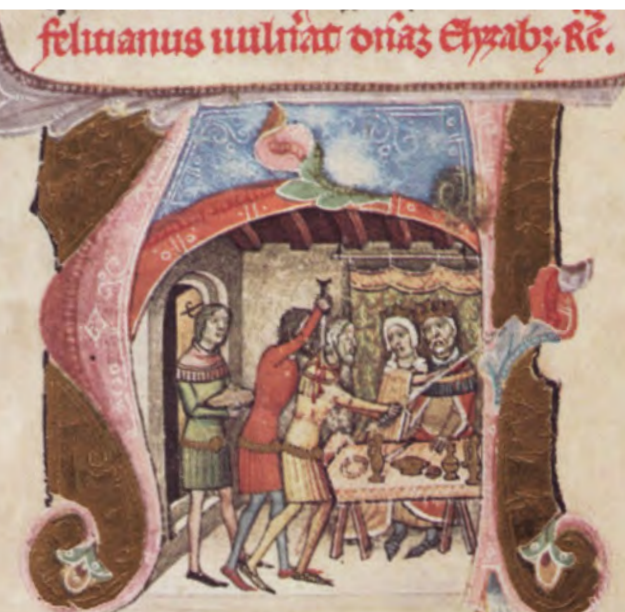 felicianus uuln̄at dn̄aȝ Elyzabȝ. Rē.